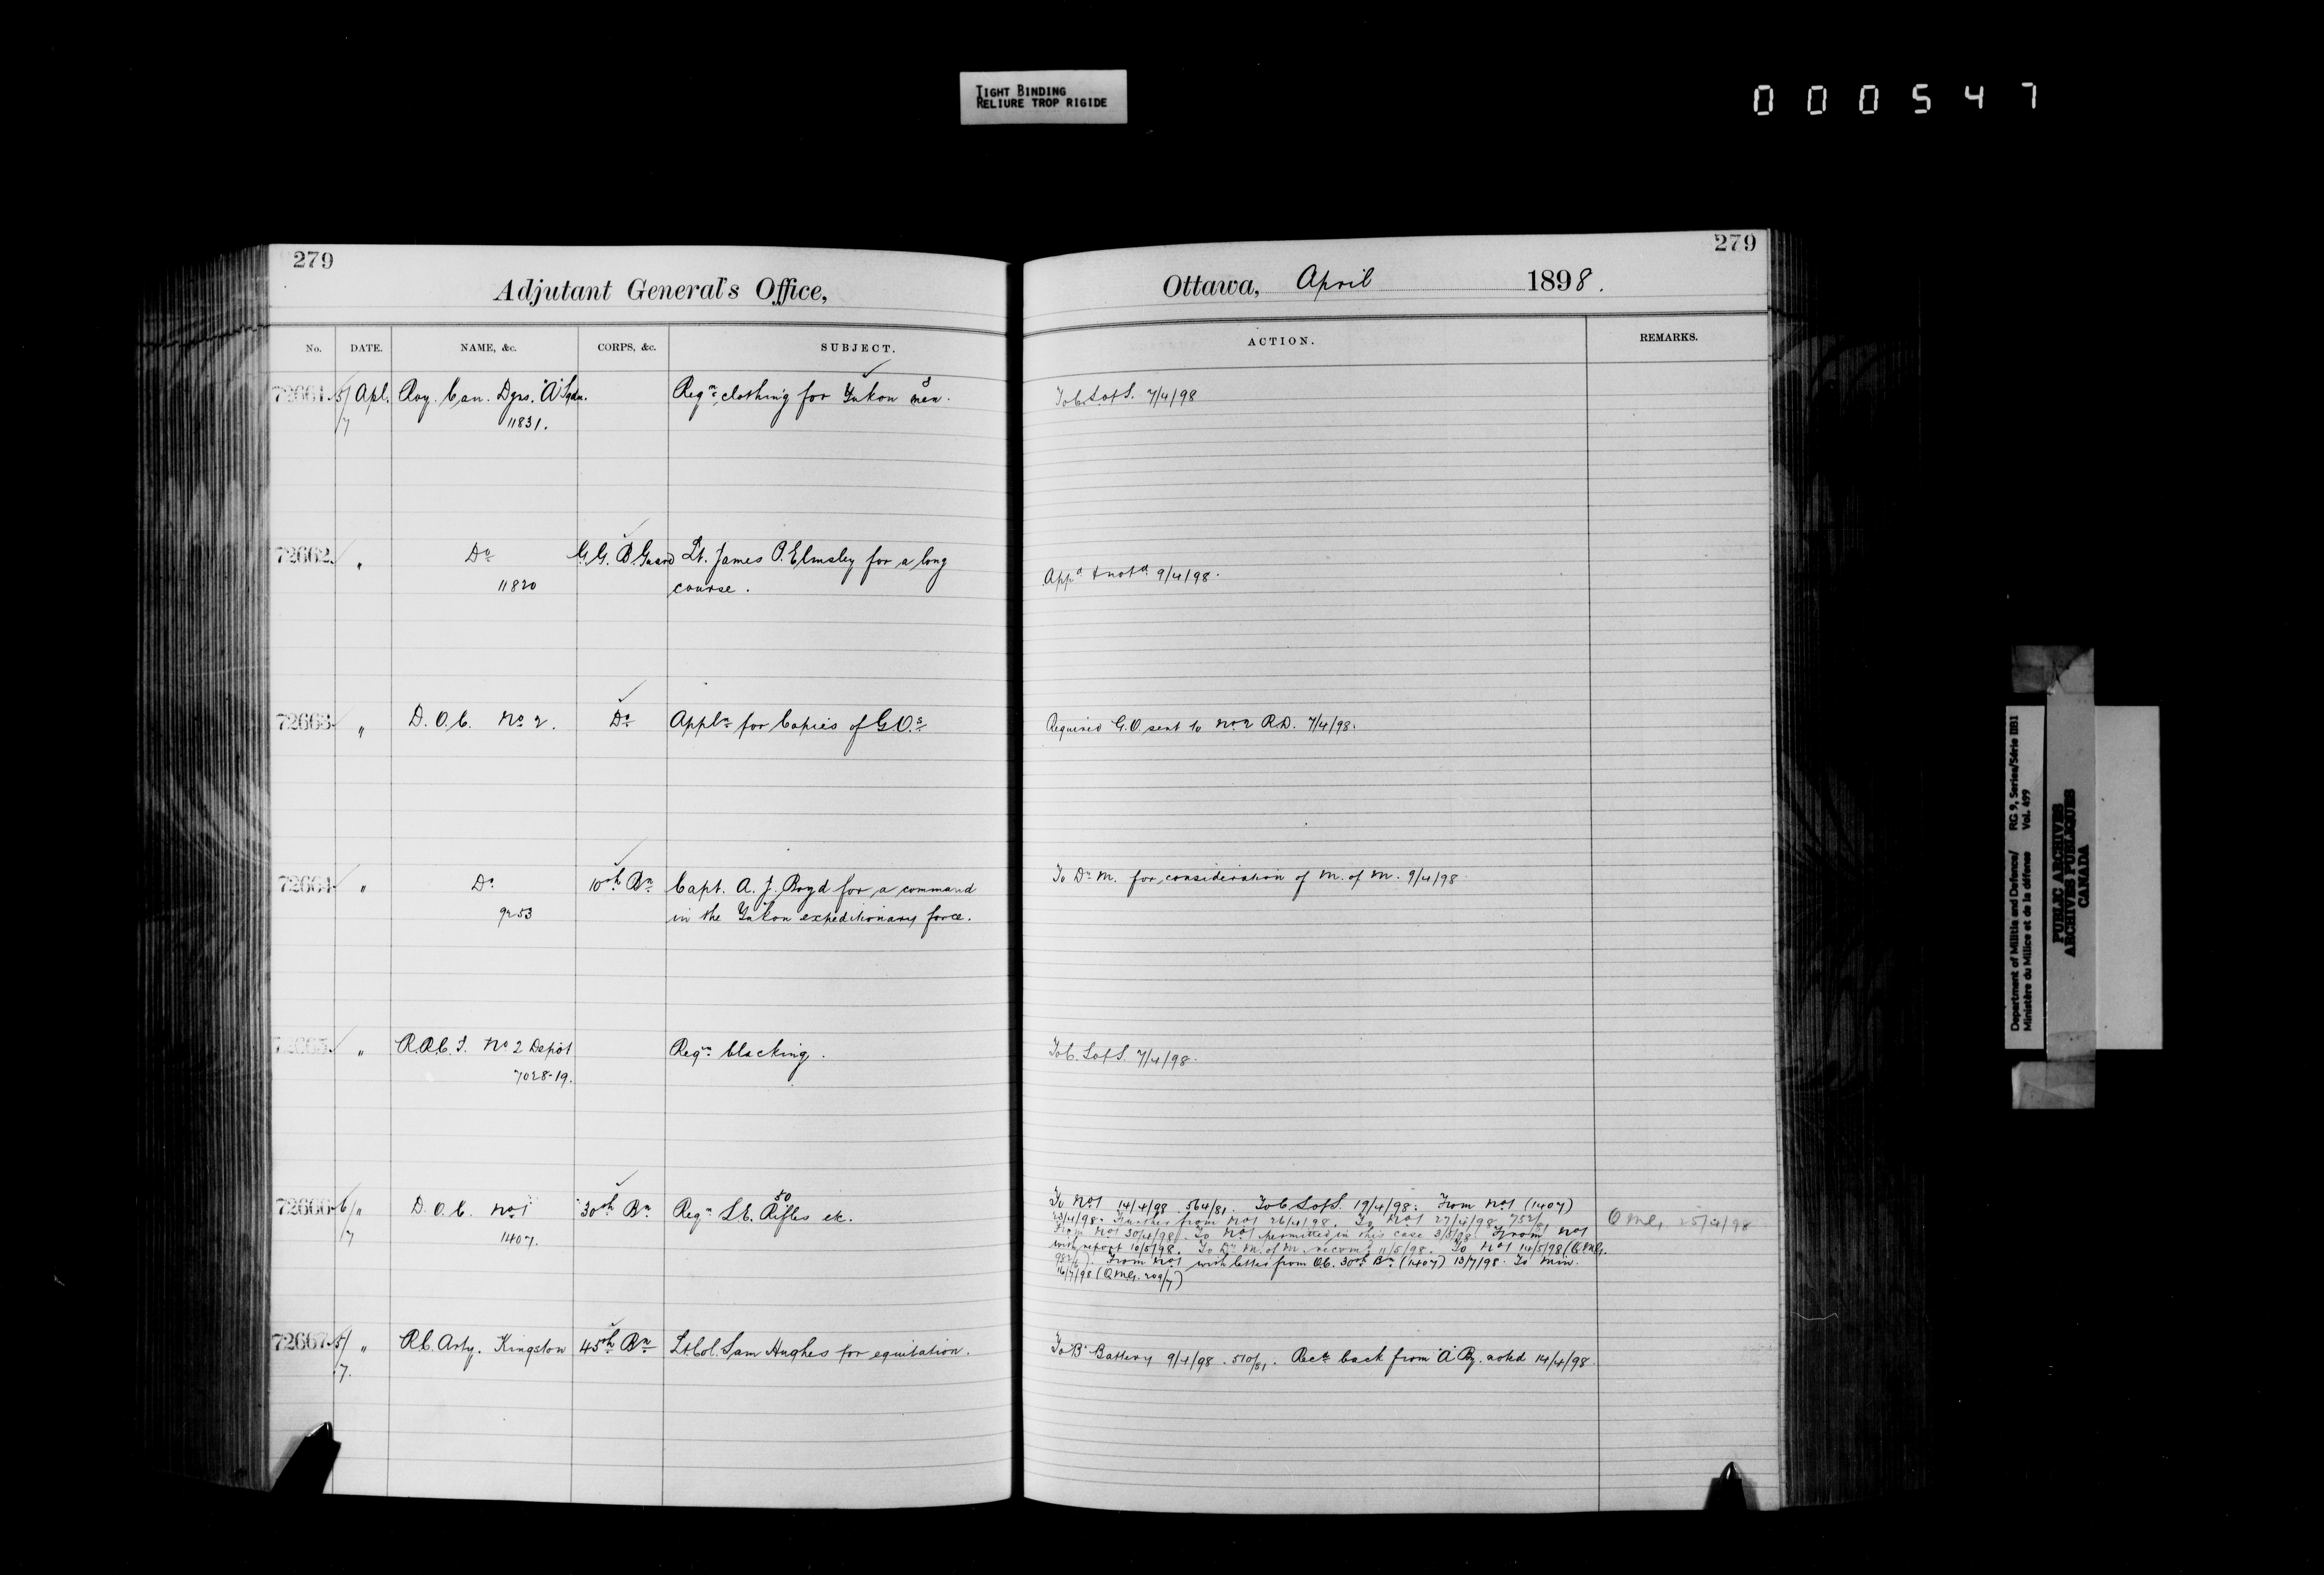 TIGHT BINDING
RELIURE TROP RIGIDE
000547
279
279
Adjutant General's Office,
Ottawa, April 1898.
No. DATE. NAME, &c. CORPS, &c. SUBJECT. ACTION. REMARKS.
72661 5/ Apl. Roy. Can. Dgns. "A" Sqdn. Reqn clothing for Yukon men. To C. S of S. 7/4/98
/7 11831.
72662 " Do G.G. B. Guard Lt. James P. Elmsley for a long Appd & notd 9/4/98.
11820 course.
72663 " D.O.C. No 2. Do Appln for Copies of G.O.s Required G.O. sent to No 2 R.D. 7/4/98.
72664 " Do 10th Bn Capt. A. J. Boyd for a command To Dr M. for consideration of M. of M. 9/4/98
9253 in the Yukon expeditionary force.
72665 " R.R.C.I. No 2 Depôt Reqn blacking. To C. S of S. 7/4/98.
7028-19.
72666 6/ " D.O.C. No 1 30th Bn Reqn 50 L.E. Rifles etc.
/7 1407.
To No 1 14/4/98 564/81. To C. S of S. 19/4/98. From No 1 (1407)
23/4/98. Further from No 1 26/4/98. To No 1 27/4/98. 752/81
From No 1 30/4/98. To No 1 permitted in this case 3/5/98. From No 1
with report 10/5/98. To Dr M. of M. recom. 11/5/98. To No 1 14/5/98 (Q.M.G.
From No 1 with letter from O.C. 30th Bn (1407) 13/7/98. To Min.
16/7/98 (Q.M.G. 209/7)
Q.M.G. 25/4/98
72667 5/ " R.C. Arty. Kingston 45th Bn Lt. Col. Sam Hughes for equitation. To "B" Battery 9/4/98. 510/81. Recd back from "A" By. noted 14/4/98.
/7.
Department of Militia and Defence/ RG 9, Series/Série IIB1
Ministère du Milice et de la défense Vol. 499
PUBLIC ARCHIVES
ARCHIVES PUBLIQUES
CANADA